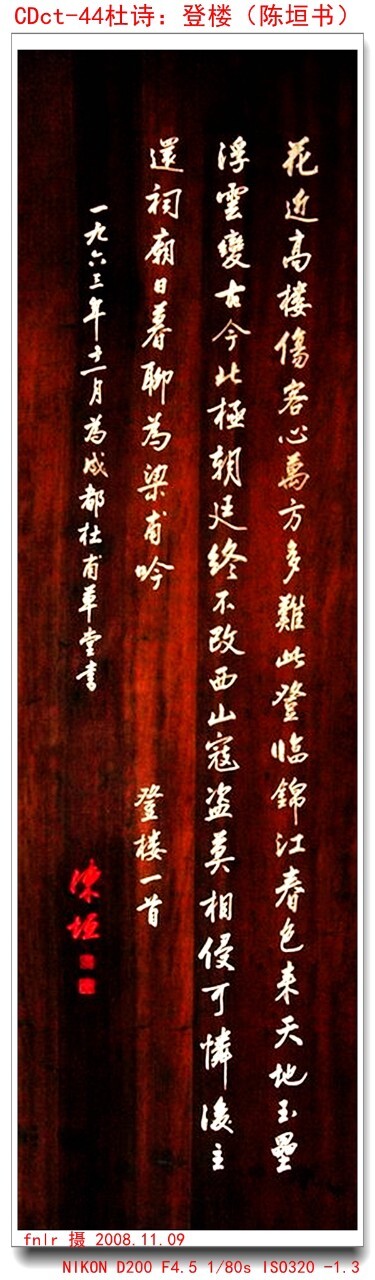 CDct-44杜诗：登楼（陈垣书）
花近高楼傷客心萬方多難此登臨錦江春色来天地玉壘
浮雲變古今北極朝廷终不改西山寇盗莫相侵可憐後主
還祠廟日暮聊為梁甫吟　登楼一首
一九六三年十一月為成都杜甫草堂書
陳垣
fnlr 摄 2008.11.09
NIKON D200 F4.5 1/80s ISO320 -1.3